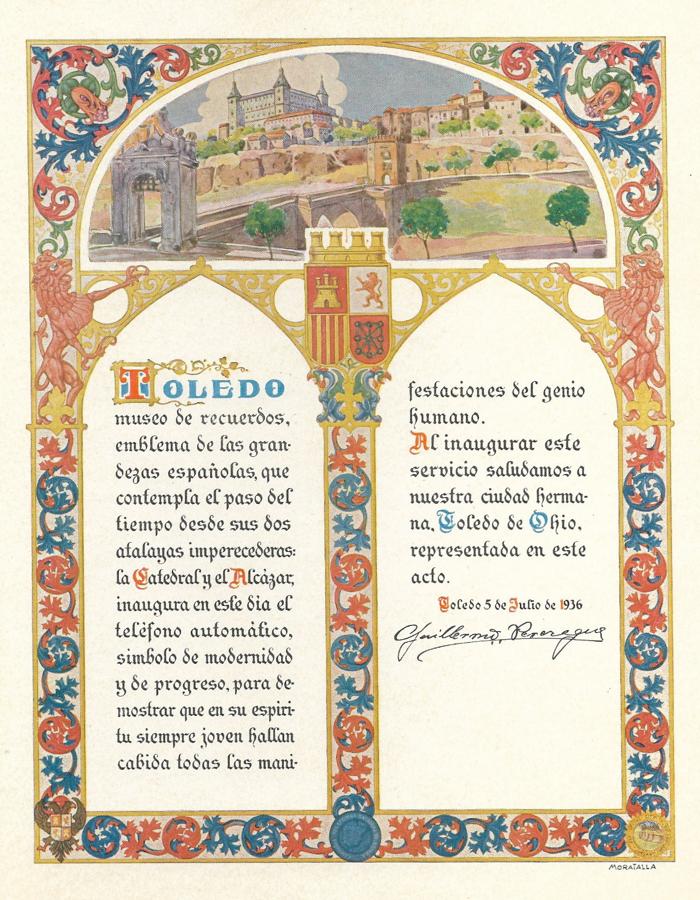 TOLEDO
museo de recuerdos,
emblema de las gran-
dezas españolas, que
contempla el paso del
tiempo desde sus dos
atalayas imperecederas:
la Catedral y el Alcázar,
inaugura en este dia el
teléfono automático,
simbolo de modernidad
y de progreso, para de-
mostrar que en su espiri-
tu siempre joven hallan
cabida todas las mani-
festaciones del genio
humano.
Al inaugurar este
servicio saludamos a
nuestra ciudad herma-
na, Toledo de Ohio,
representada en este
acto.
Toledo 5 de Julio de 1936
Guillermo Perezagua
MORATALLA